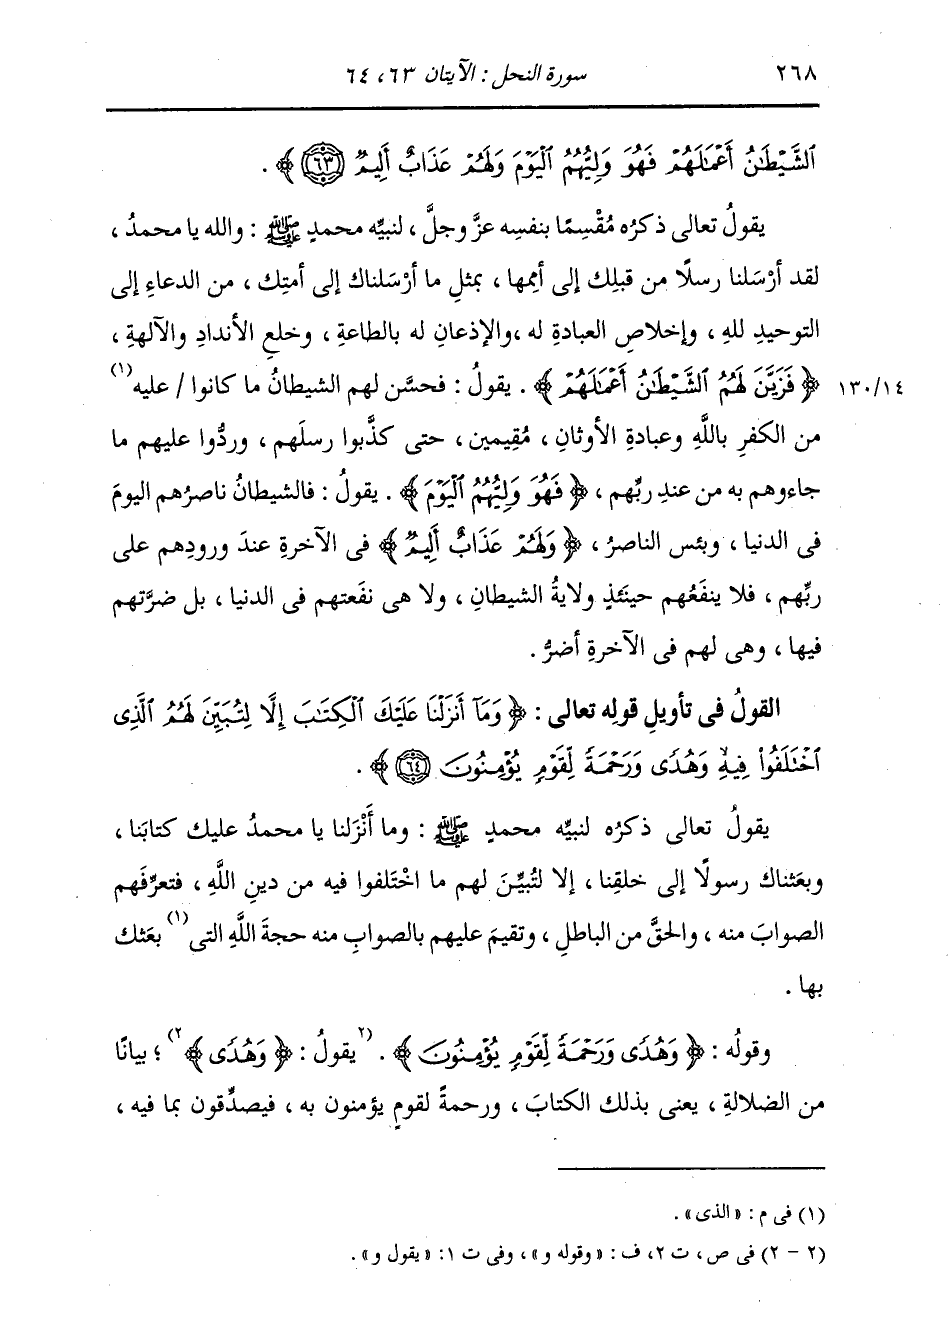 ٢٦٨ سورة النحل : الآيتان ٦٣، ٦٤
ٱلشَّيْطَٰنُ أَعْمَٰلَهُمْ فَهُوَ وَلِيُّهُمُ ٱلْيَوْمَ وَلَهُمْ عَذَابٌ أَلِيمٌ ﴿٦٣﴾ ﴾ .
يقولُ تعالى ذكرُه مُقْسِمًا بنفسِه عزَّ وجلَّ ، لنبيِّه محمدٍ ﷺ : والله يا محمدُ ،
لقد أرْسَلنا رسلًا من قبلِك إلى أممِها ، بمثلِ ما أرْسَلناك إلى أمتِك ، من الدعاءِ إلى
التوحيدِ للهِ ، وإخلاصِ العبادةِ له ،والإذعانِ له بالطاعةِ ، وخلعِ الأندادِ والآلهةِ ،
﴿ فَزَيَّنَ لَهُمُ ٱلشَّيْطَٰنُ أَعْمَٰلَهُمْ ﴾ . يقولُ : فحسَّن لهم الشيطانُ ما كانوا / عليه(١) ١٣٠/١٤
من الكفرِ باللَّهِ وعبادةِ الأوثانِ ، مُقِيمين ، حتى كذَّبوا رسلَهم ، وردُّوا عليهم ما
جاءوهم به من عندِ ربِّهم ، ﴿ فَهُوَ وَلِيُّهُمُ ٱلْيَوْمَ ﴾ . يقولُ : فالشيطانُ ناصرُهم اليومَ
فى الدنيا ، وبئس الناصرُ ، ﴿ وَلَهُمْ عَذَابٌ أَلِيمٌ ﴾ فى الآخرةِ عندَ ورودِهم على
ربِّهم ، فلا ينفَعُهم حينَئذٍ ولايةُ الشيطانِ ، ولا هى نفَعتهم فى الدنيا ، بل ضرَّتهم
فيها ، وهى لهم فى الآخرةِ أضرُّ .
القولُ فى تأويلِ قولِه تعالى : ﴿ وَمَآ أَنزَلْنَا عَلَيْكَ ٱلْكِتَٰبَ إِلَّا لِتُبَيِّنَ لَهُمُ ٱلَّذِى
ٱخْتَلَفُوا۟ فِيهِ وَهُدًى وَرَحْمَةً لِّقَوْمٍ يُؤْمِنُونَ ﴿٦٤﴾ ﴾ .
يقولُ تعالى ذكرُه لنبيِّه محمدٍ ﷺ : وما أَنْزَلنا يا محمدُ عليك كتابَنا ،
وبعَثناك رسولًا إلى خلقِنا ، إلا لتُبيِّنَ لهم ما اخْتَلفوا فيه من دينِ اللَّهِ ، فتعرِّفَهم
الصوابَ منه ، والحقَّ من الباطلِ ، وتقيمَ عليهم بالصوابِ منه حجةَ اللَّهِ التى(١) بعَثك
بها .
وقولُه : ﴿ وَهُدًى وَرَحْمَةً لِّقَوْمٍ يُؤْمِنُونَ ﴾ . (٢يقولُ : ﴿ وَهُدًى ﴾٢) ؛ بيانًا
من الضلالةِ ، يعنى بذلك الكتابَ ، ورحمةً لقومٍ يؤمنون به ، فيصدِّقون بما فيه ،
(١) فى م : « الذى » .
(٢ - ٢) فى ص ، ت ٢، ف : « وقوله و » ، وفى ت ١: « يقول و » .